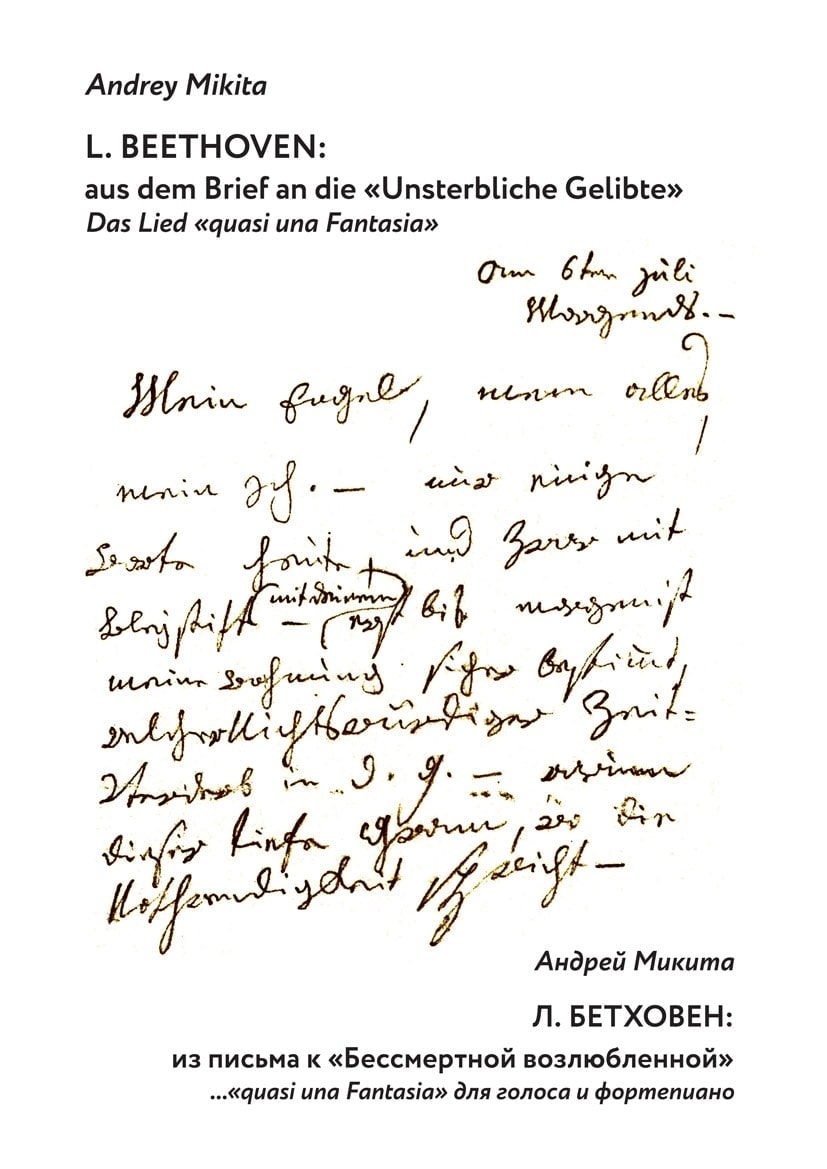 Andrey Mikita
L. BEETHOVEN:
aus dem Brief an die «Unsterbliche Gelibte»
Das Lied «quasi una Fantasia»
am 6ten juli
Morgends. –
Mein Engel, mein alles,
mein Ich. – nur einige
Worte heute, und zwar mit
Bleystift – (mit deinem) erst bis morgen ist
meine Wohnung sicher bestimmt,
welcher Nichtswürdiger Zeit=
Verderb in d. g. – warum
dieser tiefe Gram, wo die
Nothwendigkeit spricht –
Андрей Микита
Л. БЕТХОВЕН:
из письма к «Бессмертной возлюбленной»
...«quasi una Fantasia» для голоса и фортепиано